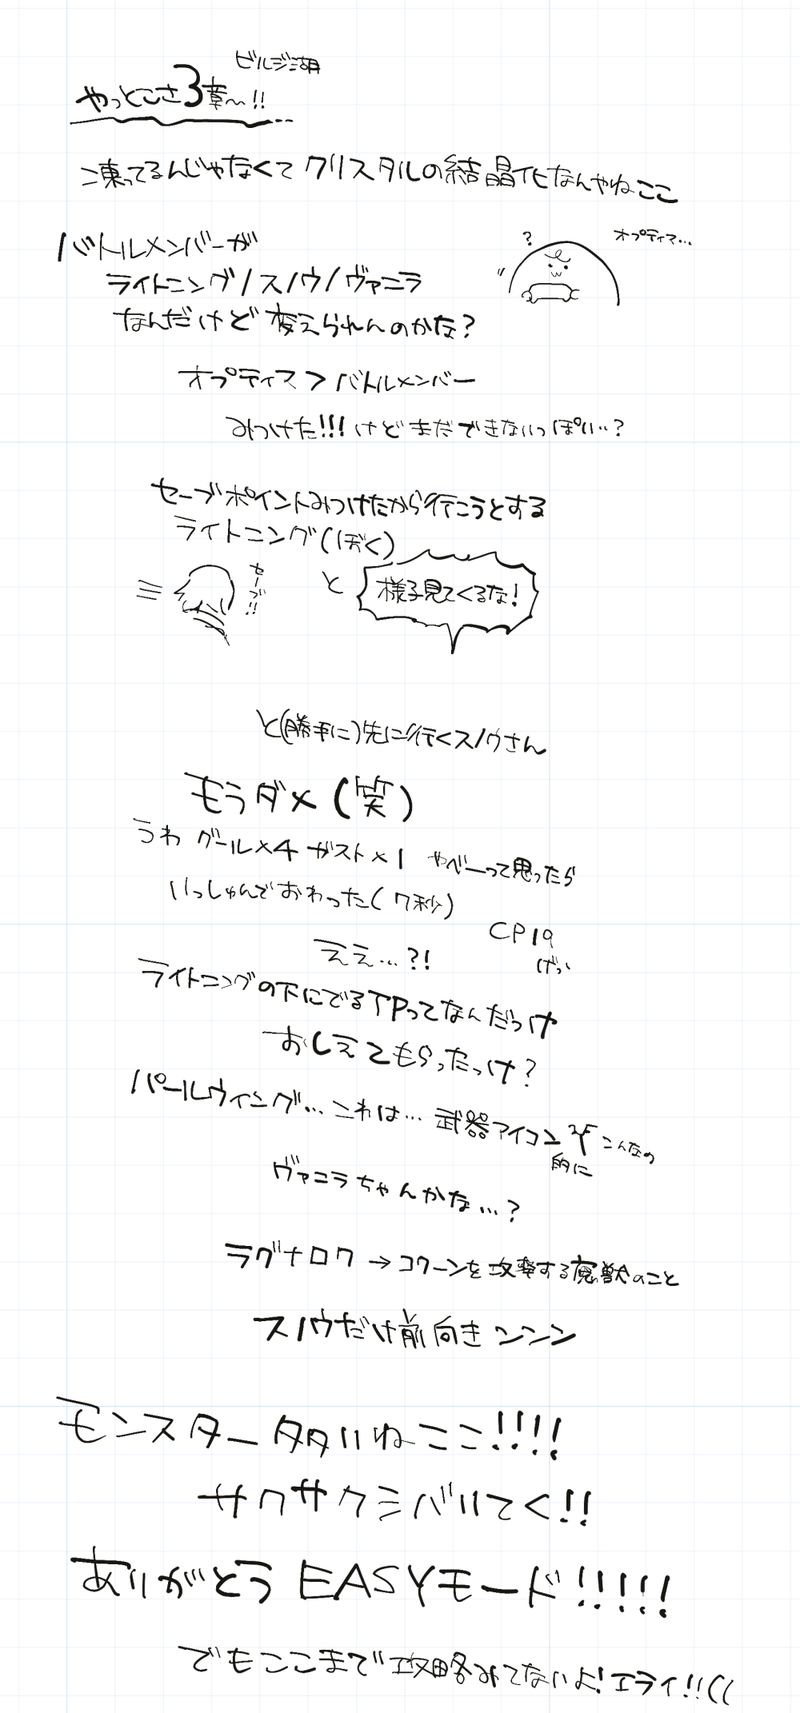 ビルジ湖
やっとこさ3章～!!
凍ってるんじゃなくて クリスタルの結晶化なんやねここ
バトルメンバーが
ライトニング/スノウ/ヴァニラ
なんだけど 変えられんのかな?
?
オプティマ…
オプティマ > バトルメンバー
みつけた!!! けど まだ できないっぽい…?
セーブポイントみつけたから行こうとする
ライトニング(ぼく)
セーブ!!
と
様子見てくるな!
と(勝手に)先に行くスノウさん
もうダメ(笑)
うわ グール×4 ガスト×1 やべーって思ったら
いっしゅんでおわった(7秒)
CP19
げっ
ええ…?!
ライトニングの下にでるTPってなんだっけ
おしえてもらったっけ?
パールウィング… これは… 武器アイコン こんなの
的に
ヴァニラちゃんかな…?
ラグナロク → コクーンを攻撃する魔獣のこと
スノウだけ前向きンンン
モンスター多いねここ!!!!
サクサクシバいてく!!
ありがとう EASYモード!!!!!
でもここまで攻略みてないよ! エライ!!((